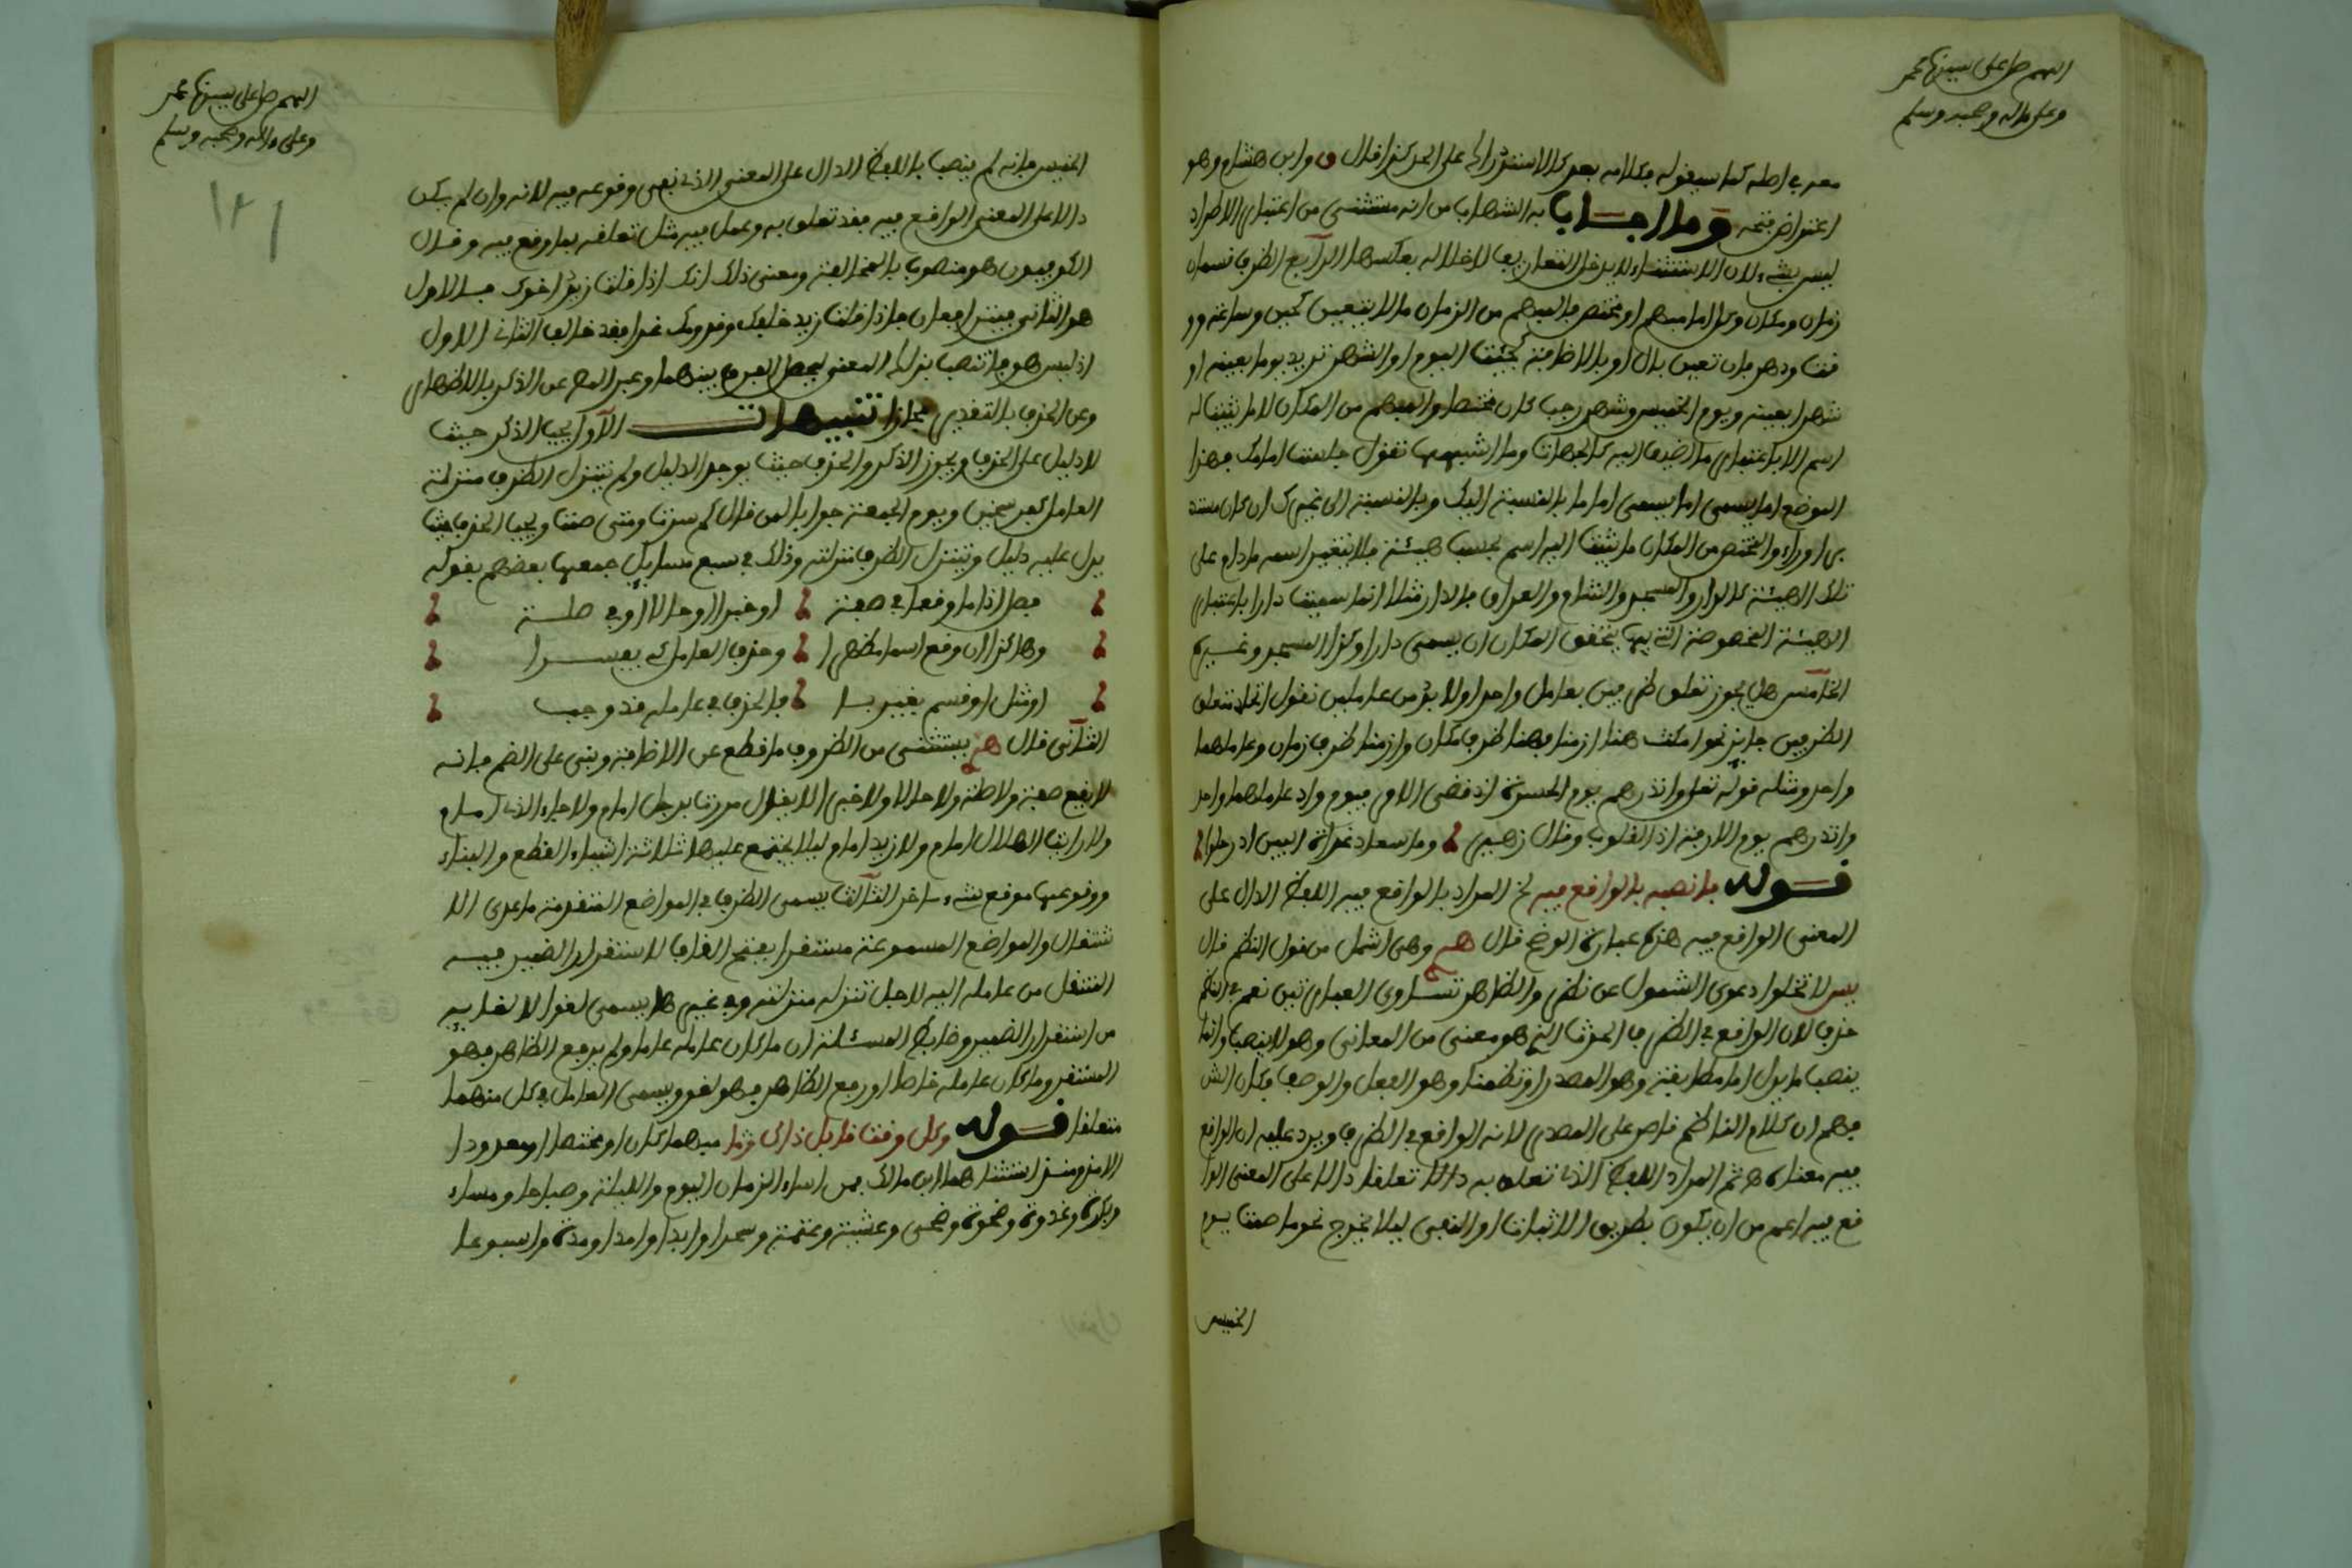 اللهم صل على سيدنا محمد
وعلى ءاله وصحبه وسلم
معه في اصله كما سيقوله بكلامه بعد كالاستدراك على الحد كذا قال وابن هشام وهو
اعتراض متجه وما اجاب به الشهاب من انه مستثنى من اعتبار الاطراد
ليس بشيء لان الاستثناء لا يدخل التعاريف لاخلاله بعكسها الرابع الظرف قسمان
زمان ومكان وكل اما مبهم او مختص فالمبهم من الزمان ما لا يتعين كحين وساعة وو
قت ودهر فان تعين بال او بالاضافة كجئت اليوم او الشهر تريد يوما بعينه او
شهرا بعينه ويوم الخميس وشهر رجب كان مختصا والمبهم من المكان لا ما يثبت له
اسم الا باعتبار ما اضيف اليه كالجهات وما اشبهها تقول جلست امامك فهذا
الموضع انما يسمى اماما بالنسبة اليك وبالنسبة الى غيرك ان كان مستد
برا وراء والمختص من المكان ما يثبت اليه اسم بحسب هيئة فلا يتغير اسمه ما دام على
تلك الهيئة كالدار والمسجد والشام والعراق فالدار مثلا انما سميت دارا باعتبار
الهيئة المخصوصة التي بها يتحقق المكان ان يسمى دارا وكذا المسجد وغيره
الخامس هل يجوز تعلق ظرفين بعامل واحد اولا بد من عاملين نقول اتحاد متعلق
الظرفين جائز نحو امكث هنا ازمنا فهنا ظرف مكان وازمنا ظرف زمان وعاملهما
واحد ومثله قوله تعلى وانذرهم يوم الحسرة اذ قضي الامر فيوم واذ عاملهما واحد
وانذرهم يوم الازفة اذ القلوب وقال زهير وما سعاد غداة البين اذ رحلوا
قوله فانصبه بالواقع فيه لخ المراد بالواقع فيه اللفظ الدال على
المعنى الواقع فيه هذه عبارة الموضح قال هـ وهي اشمل من قول النظم قال
يس لا تخلوا دعوى الشمول عن نظر والظاهر تساوى العبارتين نعم في النظم
حذف لان الواقع في الظرف الحدث الذي هو معنى من المعاني وهو لا ينصب وانما
ينصب ما يدل اما مطابقة وهو المصدر او تضمنا وهو الفعل والوصف وكان الش
فهم ان كلام الناظم قاصر على المصدر لانه الواقع في الظرف ويرد عليه ان الواقع
فيه معناه ثم المراد اللفظ الذي تعلق به دالا تعلقا دالا على المعنى الوا
قع فيه اعم من ان يكون بطريق الاثبات او النفي ليلا يخرج نحو ما صمت يوم
الخميس
اللهم صل على سيدنا محمد
وعلى ءاله وصحبه وسلم
١٢١
الخميس فانه لم ينصب باللفظ الدال على المعنى الذي نفى وقوعه فيه لانه وان لم يكن
دالا على المعنى الواقع فيه فقد تعلق به وعمل فيه مثل تعلقه بما وقع فيه وقال
الكوفيون هو منصوب بالمخالفة ومعنى ذلك انك اذا قلت زيد اخوك فالاول
هو الثاني فيترافعان فاذا قلت زيد خلفك وقدومك غدا فقد خالف الثاني الاول
اذ ليس هو فانتصب بذلك المعنى ليحصل الفرق بينهما وعبر المص عن الذكر بالاظهار
وعن الحذف بالتقدير مجازا تنبيهات الاول يجب الذكر حيث
لا دليل على الحذف ويجوز الذكر والحذف حيث يوجد الدليل ولم يتنزل الظرف منزلة
العامل كفرسخين ويوم الجمعة جوابا لمن قال كم سرت ومتى صمت ويجب الحذف حيث
يدل عليه دليل وتنزل الظرف منزلته وذلك في سبع مسايل جمعها بعضهم بقوله
فصل اذا ما وقعا في صفة او خبرا او حالا او في صلة
وهاكذا ان وقع اسما مظهرا وحذف العامل كي يفسرا
او مثل او قسم بغير با فالحذف في عامله قد وجب
الثاني قال هـ يستثنى من الظروف ما قطع عن الاضافة وبني على الضم فانه
لا يقع صفة ولا صلة ولا حالا ولا خبرا لا يقال مررت برجل امام ولا جاء الذي امام
ولا رايت الهلال امام ولا زيد امام ليلا يجتمع عليها ثلاثة اشياء القطع والبناء
ووقوعها موقع شيء ءاخر الثالث يسمى الظرف في المواضع المتقدمة ما عدى الا
شتغال والمواضع المسموعة مستقرا بفتح القاف لاستقرار الضمير فيه
المنتقل من عامله اليه لاجل تنزله منزلته وفي غيرها يسمى لغوا لالغايه
من استقرار الضمير وضابط المسئلة ان ما كان عامله عاما ولم يرفع الظاهر فهو
المستقر وما كان عامله خاصا او رفع الظاهر فهو لغو ويسمى العامل في كل منهما
متعلقا قوله وكل وقت قابل ذاك وما مبهما كان او مختصا او معدودا
الامذ ومنذ استثناهما ابن مالك فمن اسماء الزمان اليوم والليلة وصباحا ومساء
وبكرة وغدوة وضحوة وضحى وعشية وعتمة وسحرا وابدا وامدا ومدة واسبوعا